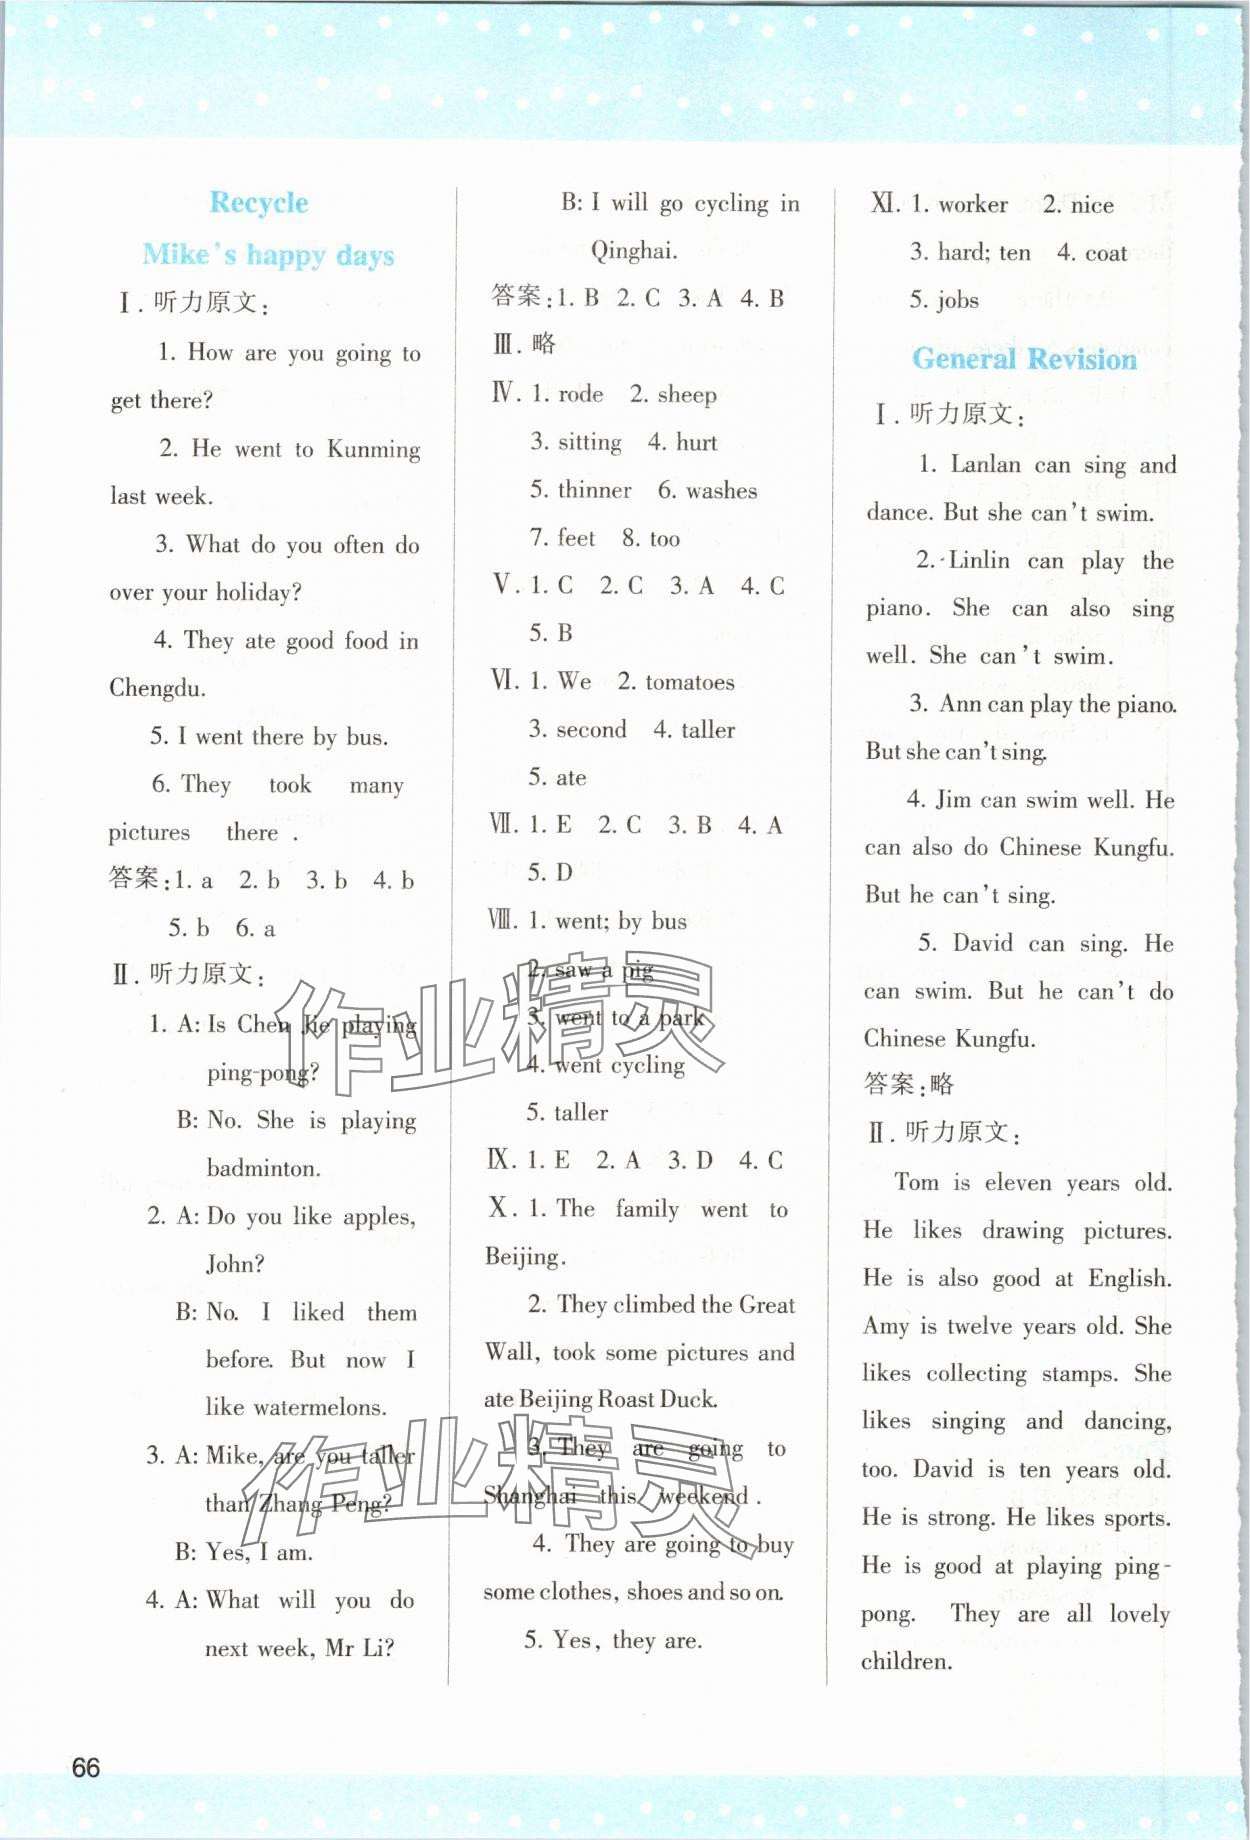 Recycle
Mike's happy days
Ⅰ. 听力原文:
1. How are you going to
get there?
2. He went to Kunming
last week.
3. What do you often do
over your holiday?
4. They ate good food in
Chengdu.
5. I went there by bus.
6. They took many
pictures there.
答案:1. a 2. b 3. b 4. b
5. b 6. a
Ⅱ. 听力原文:
1. A: Is Chen Jie playing
ping-pong?
B: No. She is playing
badminton.
2. A: Do you like apples,
John?
B: No. I liked them
before. But now I
like watermelons.
3. A: Mike, are you taller
than Zhang Peng?
B: Yes, I am.
4. A: What will you do
next week, Mr Li?
B: I will go cycling in
Qinghai.
答案:1. B 2. C 3. A 4. B
Ⅲ. 略
Ⅳ. 1. rode 2. sheep
3. sitting 4. hurt
5. thinner 6. washes
7. feet 8. too
Ⅴ. 1. C 2. C 3. A 4. C
5. B
Ⅵ. 1. We 2. tomatoes
3. second 4. taller
5. ate
Ⅶ. 1. E 2. C 3. B 4. A
5. D
Ⅷ. 1. went; by bus
2. saw a pig
3. went to a park
4. went cycling
5. taller
Ⅸ. 1. E 2. A 3. D 4. C
Ⅹ. 1. The family went to
Beijing.
2. They climbed the Great
Wall, took some pictures and
ate Beijing Roast Duck.
3. They are going to
Shanghai this weekend.
4. They are going to buy
some clothes, shoes and so on.
5. Yes, they are.
Ⅺ. 1. worker 2. nice
3. hard; ten 4. coat
5. jobs
General Revision
Ⅰ. 听力原文:
1. Lanlan can sing and
dance. But she can't swim.
2. Linlin can play the
piano. She can also sing
well. She can't swim.
3. Ann can play the piano.
But she can't sing.
4. Jim can swim well. He
can also do Chinese Kungfu.
But he can't sing.
5. David can sing. He
can swim. But he can't do
Chinese Kungfu.
答案:略
Ⅱ. 听力原文:
Tom is eleven years old.
He likes drawing pictures.
He is also good at English.
Amy is twelve years old. She
likes collecting stamps. She
likes singing and dancing,
too. David is ten years old.
He is strong. He likes sports.
He is good at playing ping-
pong. They are all lovely
children.
66
作业精灵
作业精灵